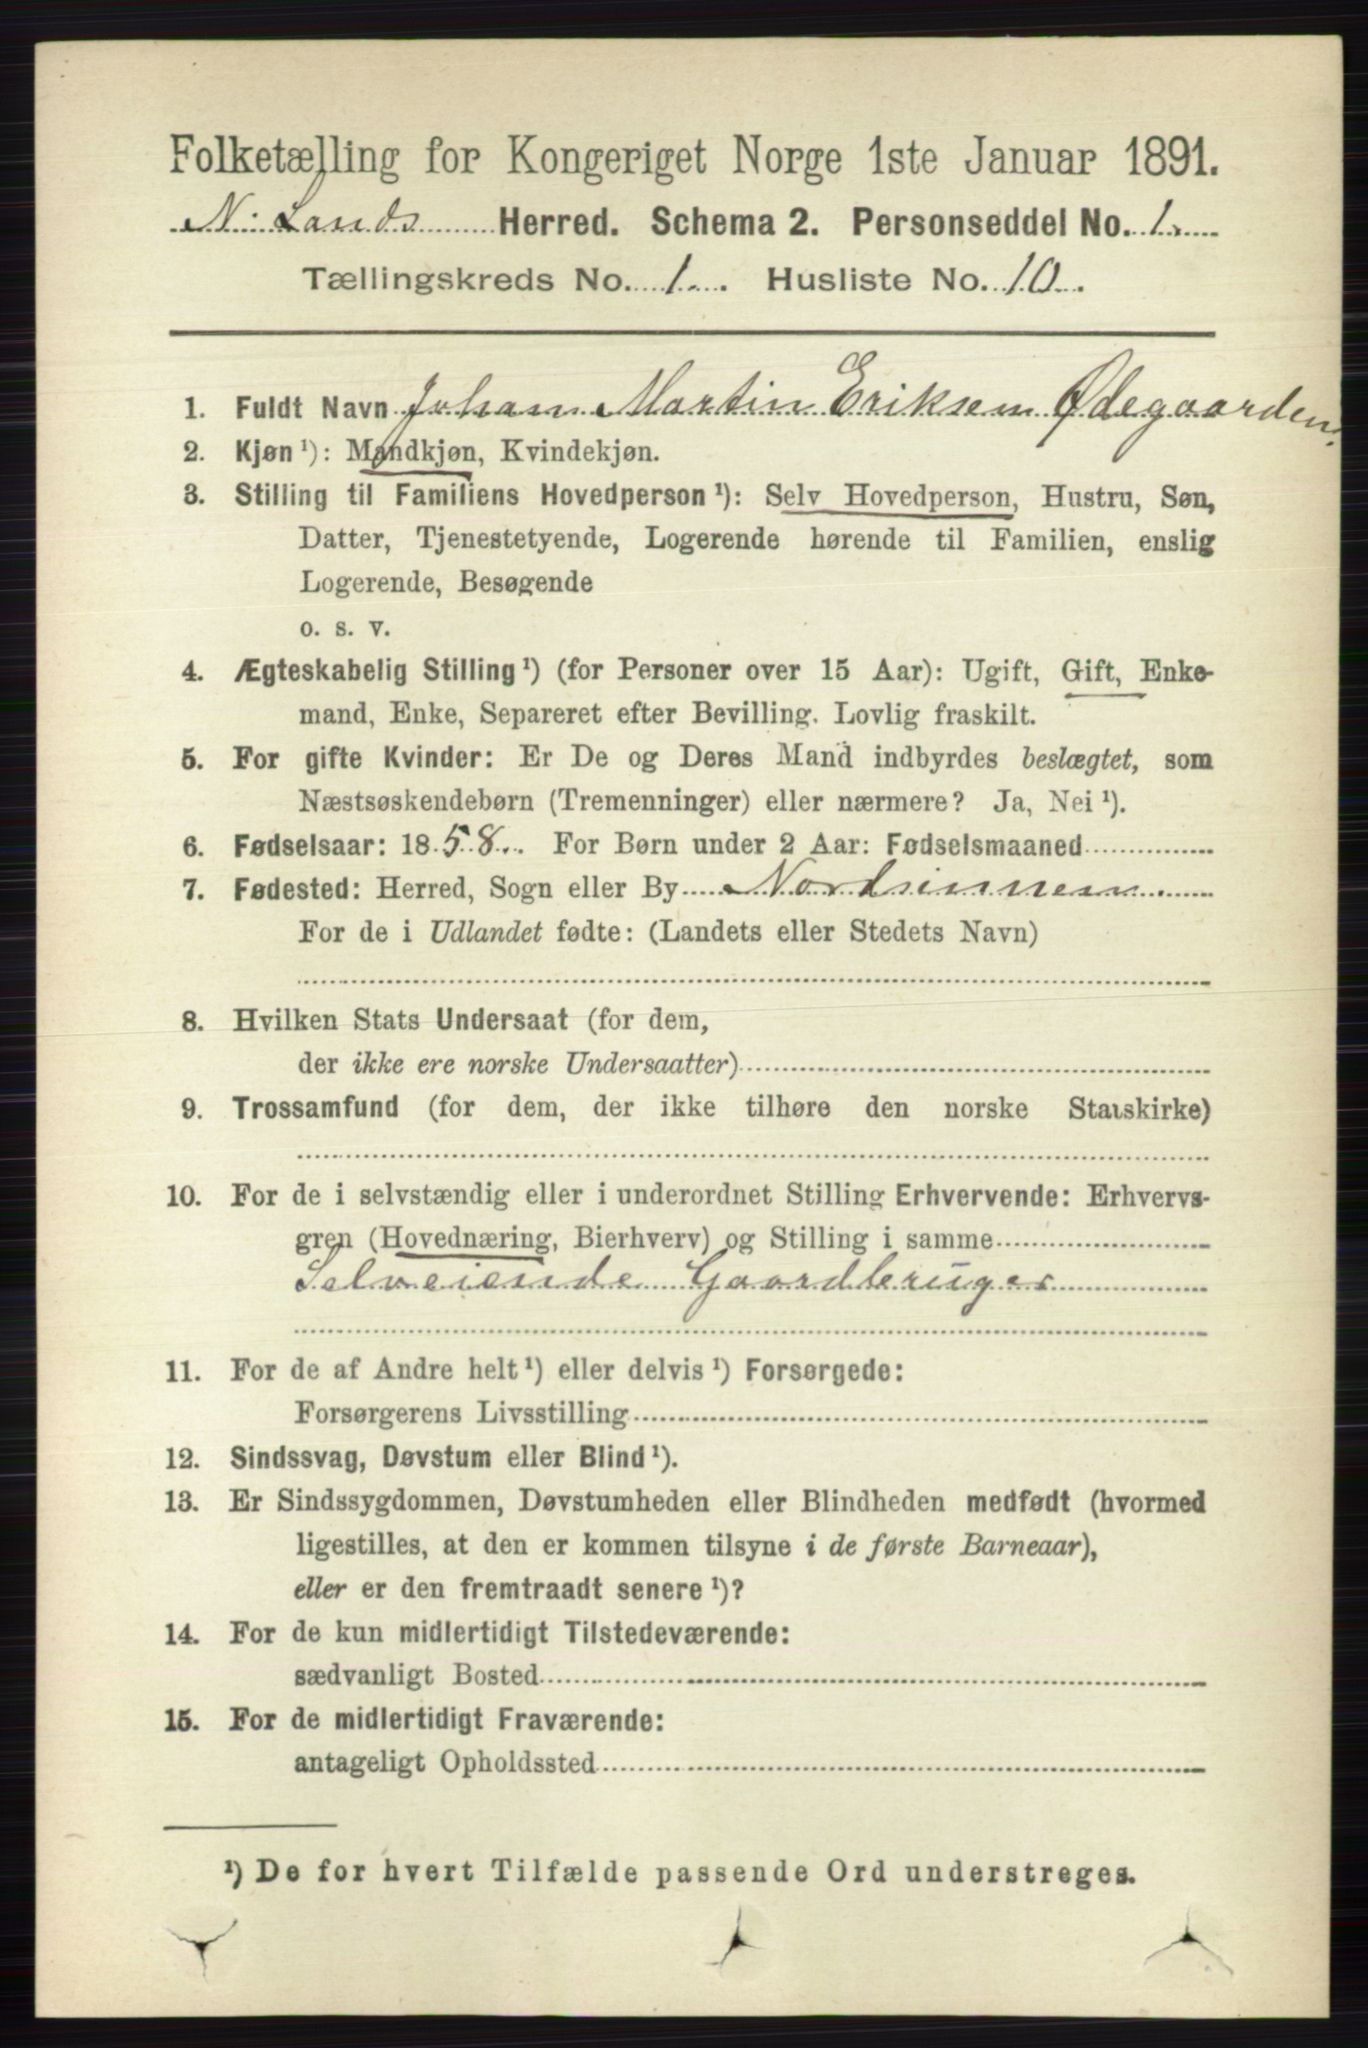 Folketælling for Kongeriget Norge 1ste Januar 1891.
N. Lands Herred. Schema 2. Personseddel No. 1.
Tællingskreds No. 1. Husliste No. 10.
1. Fuldt Navn Johan Martin Eriksen Ødegaarden.
2. Kjøn¹): Mandkjøn, Kvindekjøn.
3. Stilling til Familiens Hovedperson¹): Selv Hovedperson, Hustru, Søn,
Datter, Tjenestetyende, Logerende hørende til Familien, enslig
Logerende, Besøgende
o. s. v.
4. Ægteskabelig Stilling¹) (for Personer over 15 Aar): Ugift, Gift, Enke-
mand, Enke, Separeret efter Bevilling. Lovlig fraskilt.
5. For gifte Kvinder: Er De og Deres Mand indbyrdes beslægtet, som
Næstsøskendebørn (Tremenninger) eller nærmere? Ja, Nei¹).
6. Fødselsaar: 1858. For Børn under 2 Aar: Fødselsmaaned
7. Fødested: Herred, Sogn eller By Nordsinnen
For de i Udlandet fødte: (Landets eller Stedets Navn)
8. Hvilken Stats Undersaat (for dem,
der ikke ere norske Undersaatter)
9. Trossamfund (for dem, der ikke tilhøre den norske Statskirke)
10. For de i selvstændig eller i underordnet Stilling Erhvervende: Erhvervs-
gren (Hovednæring, Bierhverv) og Stilling i samme
Selveiende Gaardbruger
11. For de af Andre helt¹) eller delvis¹) Forsørgede:
Forsørgerens Livsstilling
12. Sindssvag, Døvstum eller Blind¹).
13. Er Sindssygdommen, Døvstumheden eller Blindheden medfødt (hvormed
ligestilles, at den er kommen tilsyne i de første Barneaar),
eller er den fremtraadt senere¹)?
14. For de kun midlertidigt Tilstedeværende:
sædvanligt Bosted
15. For de midlertidigt Fraværende:
antageligt Opholdssted
¹) De for hvert Tilfælde passende Ord understreges.